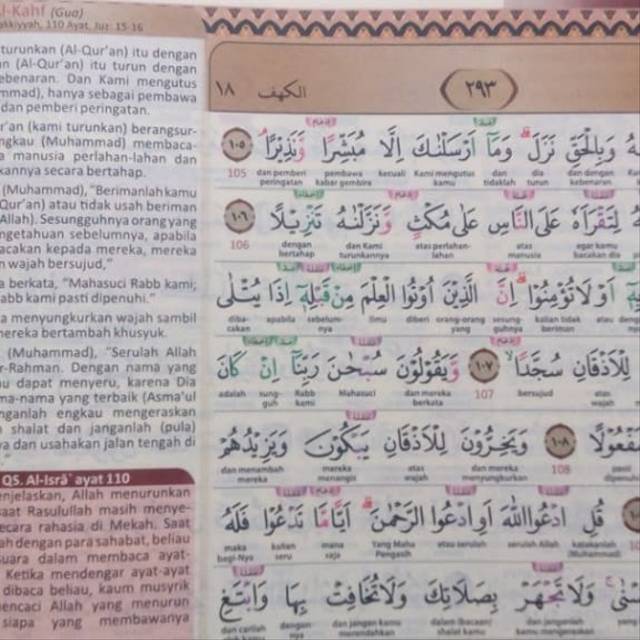 l-Kahf (Gua)
akkiyyah, 110 Ayat, Juz: 15-16
turunkan (Al-Qur'an) itu dengan
n (Al-Qur'an) itu turun dengan
ebenaran. Dan Kami mengutus
mmad), hanya sebagai pembawa
dan pemberi peringatan.
r'an (kami turunkan) berangsur-
ngkau (Muhammad) membaca-
a manusia perlahan-lahan dan
kannya secara bertahap.
(Muhammad), "Berimanlah kamu
Qur'an) atau tidak usah beriman
Allah). Sesungguhnya orang yang
ngetahuan sebelumnya, apabila
acakan kepada mereka, mereka
n wajah bersujud,"
a berkata, "Mahasuci Rabb kami;
abb kami pasti dipenuhi."
a menyungkurkan wajah sambil
ereka bertambah khusyuk.
(Muhammad), "Serulah Allah
r-Rahman. Dengan nama yang
u dapat menyeru, karena Dia
ma-nama yang terbaik (Asma'ul
nganlah engkau mengeraskan
shalat dan janganlah (pula)
ya dan usahakan jalan tengah di
QS. Al-Isrā` ayat 110
enjelaskan, Allah menurunkan
saat Rasulullah masih menye-
ecara rahasia di Mekah. Saat
ah dengan para sahabat, beliau
suara dalam membaca ayat-
Ketika mendengar ayat-ayat
dibaca beliau, kaum musyrik
encaci Allah yang menurun
siapa yang membawanya
٢٩٣ الكهف ١٨
وَبِالْحَقِّ نَزَلَ ۗ وَمَآ اَرْسَلْنٰكَ اِلَّا مُبَشِّرًا وَّنَذِيْرًاۘ ١٠٥
105 dan pemberi peringatan pembawa kabar gembira kecuali Kami mengutus kamu dan tidaklah dia turun dan dengan kebenaran
لِتَقْرَاَهٗ عَلَى النَّاسِ عَلٰى مُكْثٍ وَّنَزَّلْنٰهُ تَنْزِيْلًا ١٠٦
106 dengan bertahap dan Kami turunkannya atas perlahan-lahan atas manusia agar kamu bacakan dia
اَوْ لَا تُؤْمِنُوْا ۗ اِنَّ الَّذِيْنَ اُوْتُوا الْعِلْمَ مِنْ قَبْلِهٖٓ اِذَا يُتْلٰى
diba-cakan apabila sebelum-nya ilmu diberi orang-orang yang sesung-guhnya kalian tidak beriman atau
لِلْاَذْقَانِ سُجَّدًاۙ ١٠٧ وَّيَقُوْلُوْنَ سُبْحٰنَ رَبِّنَآ اِنْ كَانَ
adalah sung-guh Rabb kami Mahasuci dan mereka berkata 107 bersujud atas wajah
١٠٨ وَيَخِرُّوْنَ لِلْاَذْقَانِ يَبْكُوْنَ وَيَزِيْدُهُمْ
dan menambah mereka mereka menangis atas wajah dan mereka menyungkurkan 108 pasti dipenuhi
قُلِ ادْعُوا اللّٰهَ اَوِ ادْعُوا الرَّحْمٰنَ ۗ اَيًّا مَّا تَدْعُوْا فَلَهُ
maka bagi-Nya kalian seru mana saja Yang Maha Pengasih atau serulah serulah Allah katakanlah (Muhammad)
وَلَا تَجْهَرْ بِصَلَاتِكَ وَلَا تُخَافِتْ بِهَا وَابْتَغِ
dan carilah dengan-nya dan jangan kamu merendahkan dalam (bacaan) shalat kamu dan janganlah